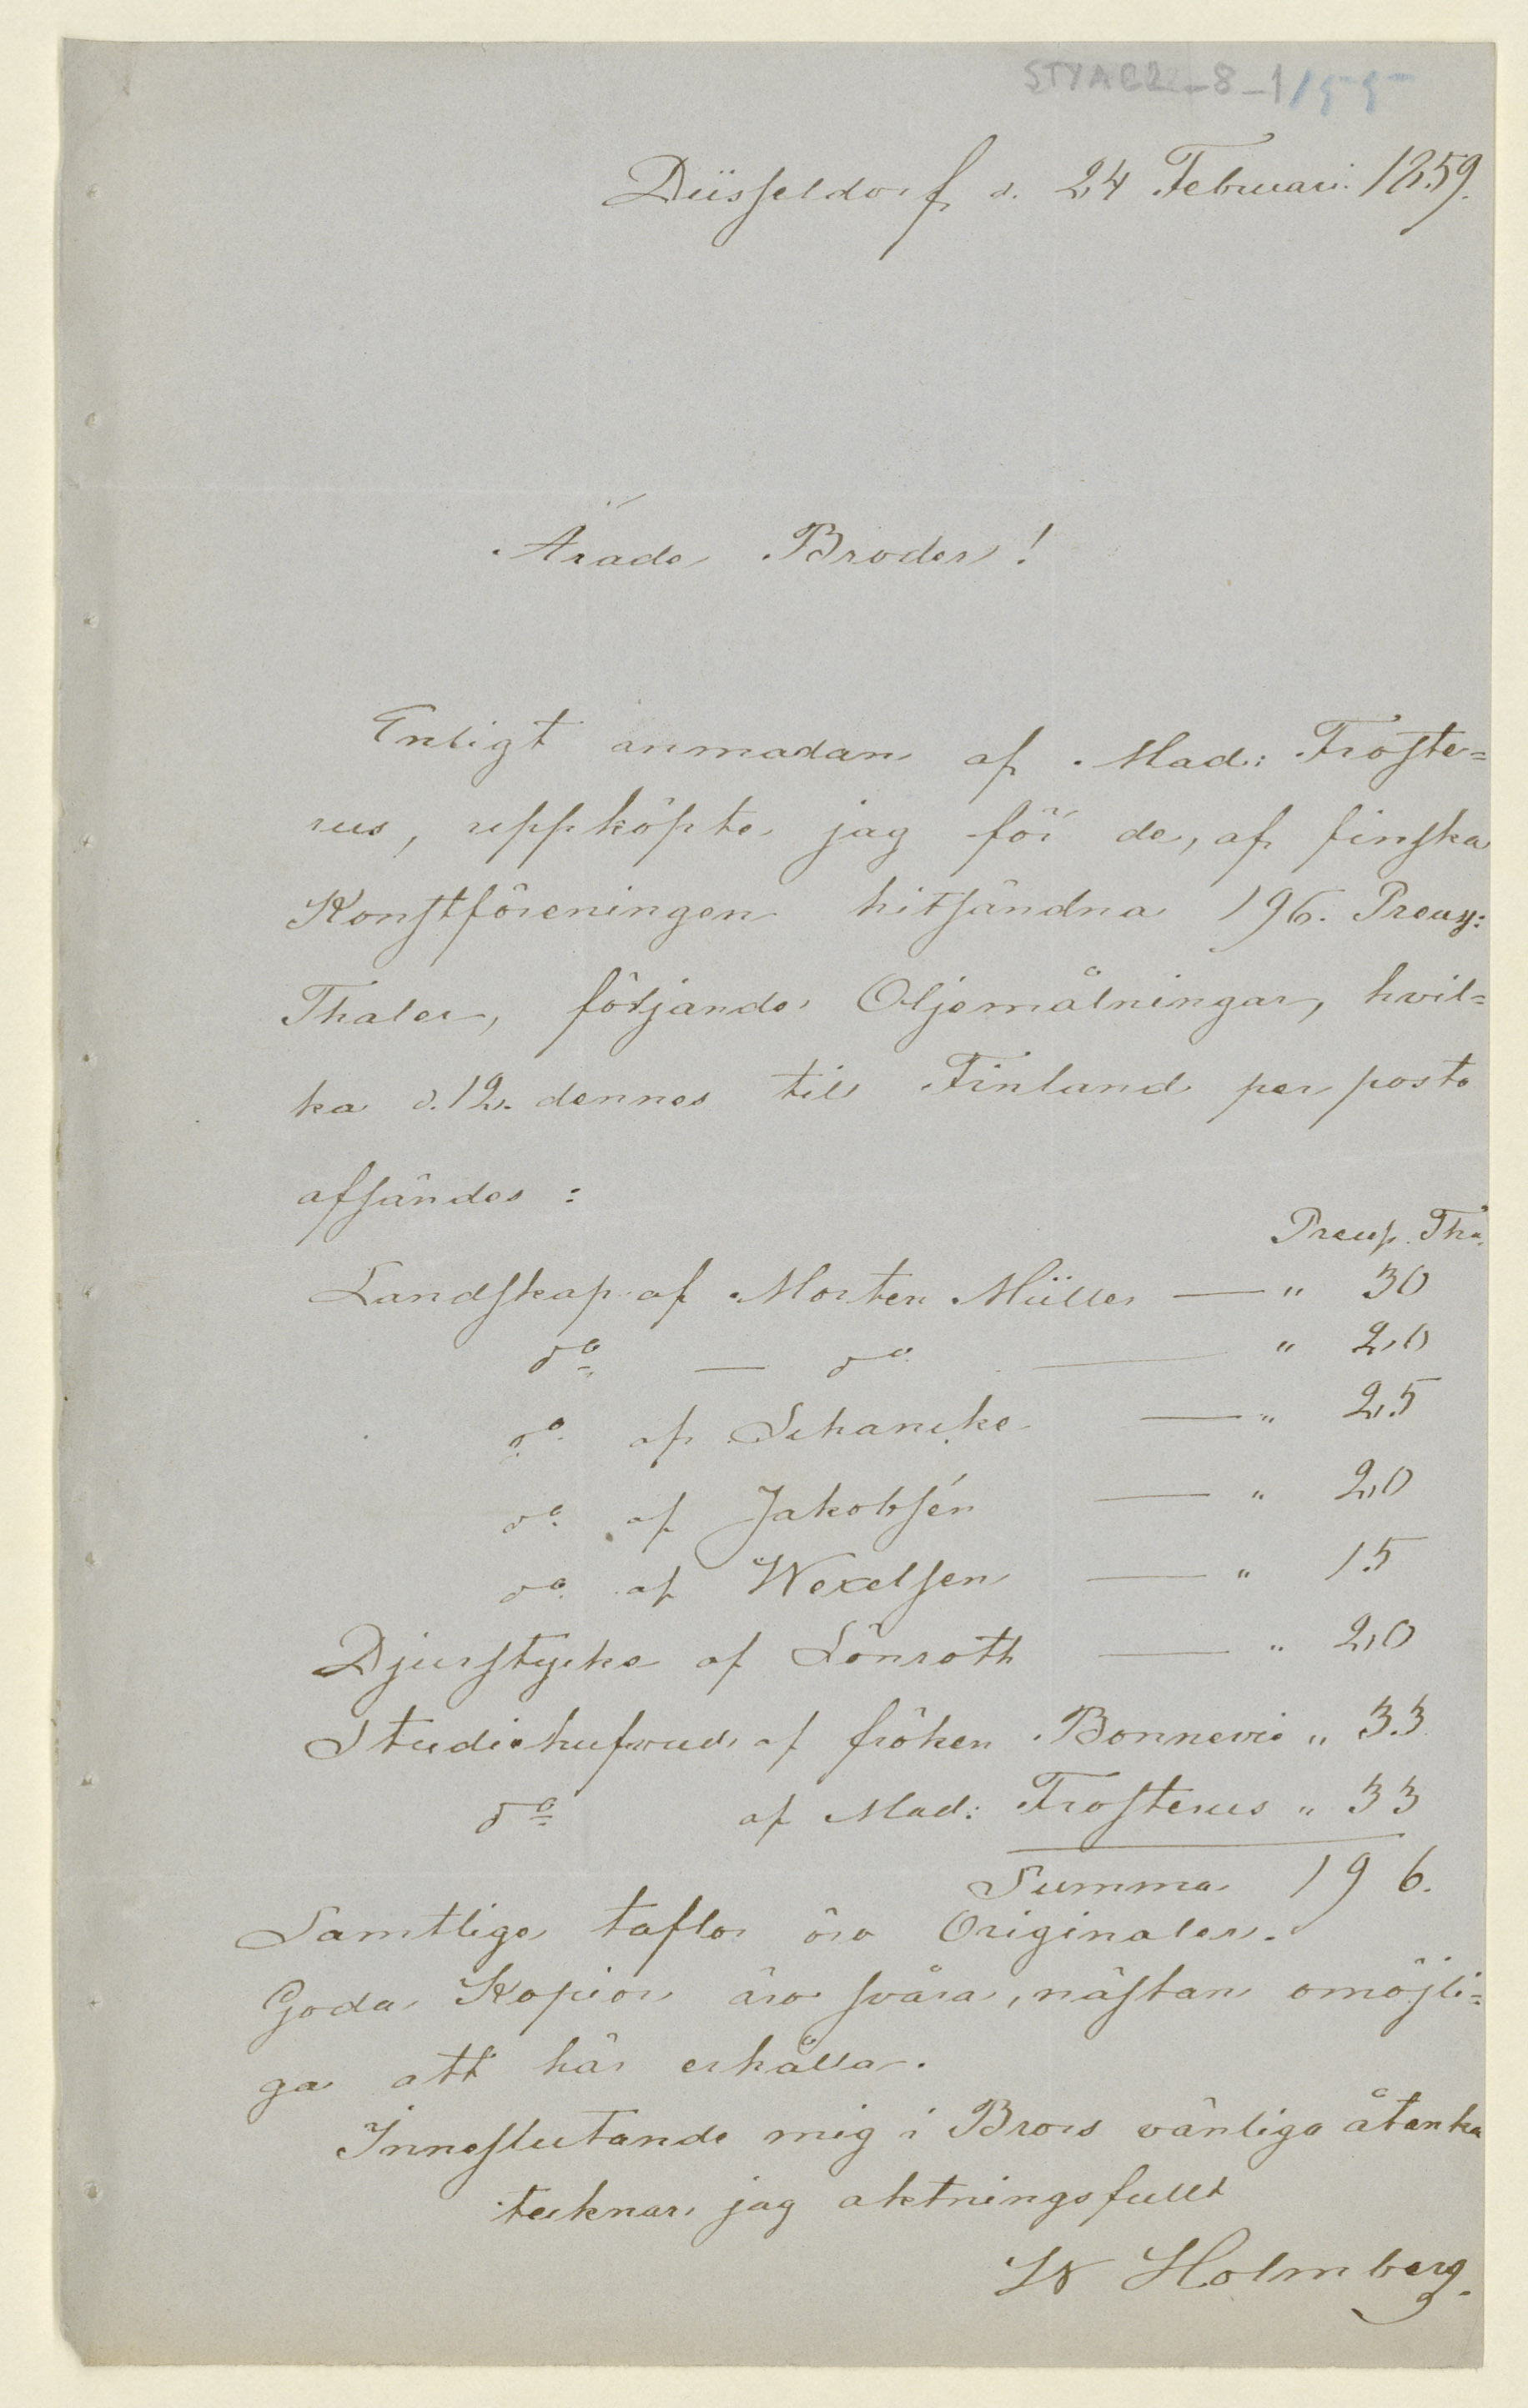 STYAC2-8-1/55
Düsseldorf d. 24 Februari 1859.
Ärade Broder!
Enligt anmodan af Mad: Froste=
rus, uppköpte jag för de, af finska
Konstföreningen hitsändna 196. Preuss:
Thaler, följande Oljemålningar, hvil=
ka d. 12. dennes till Finland per posto
afsändes:
Preuss. Tha.
Landskap af Morten Müller — " 30
do — do — " 20
do af Schancke — " 25
do af Jakobsén — " 20
do af Wexelsen — " 15
Djurstycke af Lönroth — " 20
Studiehufvud af fröken Bonnevie " 33
do af Mad: Frosterus " 33
Summa 196.
Samtlige taflor äro Originaler.
Goda Kopior äro svåra, nästan omöjli=
ga att här erhålla.
Inneslutande mig i Brors vänliga åtanka
tecknar jag aktningsfullt
W Holmberg.